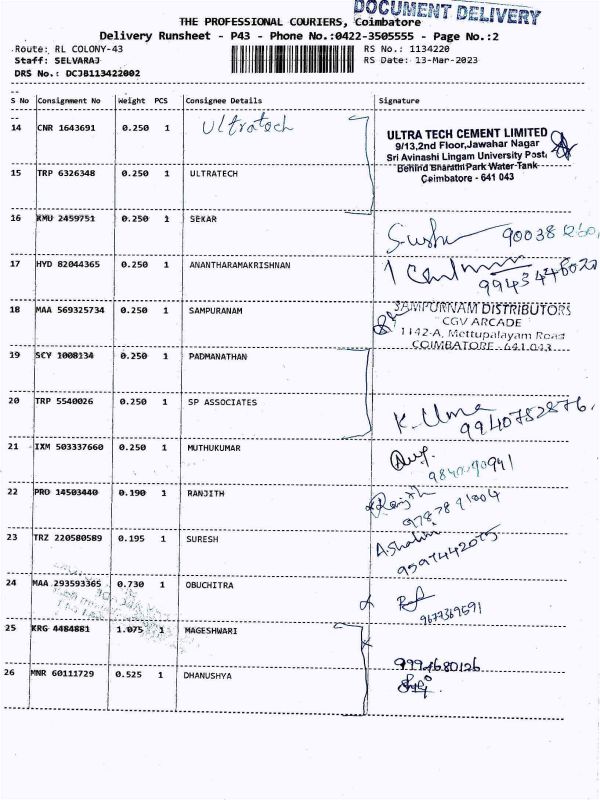 DOCUMENT DELIVERY
THE PROFESSIONAL COURIERS, Coimbatore
Delivery Runsheet - P43 - Phone No.:0422-3505555 - Page No.:2
Route: RL COLONY-43 RS No.: 1134220
Staff: SELVARAJ RS Date: 13-Mar-2023
DRS No.: DCJB113422002
S No Consignment No Weight PCS Consignee Details Signature
14 CNR 1643691 0.250 1 Ultratech
ULTRA TECH CEMENT LIMITED
9/13,2nd Floor,Jawahar Nagar
Sri Avinashi Lingam University Post,
Behind Bharathi Park Water Tank
Coimbatore - 641 043
15 TRP 6326348 0.250 1 ULTRATECH
16 KMU 2459751 0.250 1 SEKAR
17 HYD 82044365 0.250 1 ANANTHARAMAKRISHNAN
18 MAA 569325734 0.250 1 SAMPURANAM
SAMPURNAM DISTRIBUTORS
CGV ARCADE
1142-A, Mettupalayam Road
COIMBATORE - 641 043
19 SCY 1008134 0.250 1 PADMANATHAN
20 TRP 5540026 0.250 1 SP ASSOCIATES K. Uma
9940782876
21 IXM 503337660 0.250 1 MUTHUKUMAR
22 PRO 14503440 0.190 1 RANJITH Ranjith
9787891004
23 TRZ 220580589 0.195 1 SURESH A. Shalini
9597442075
24 MAA 293593365 0.730 1 OBUCHITRA
9677369591
25 KRG 4484881 1.075 1 MAGESHWARI
26 MNR 60111729 0.525 1 DHANUSHYA 9994680126